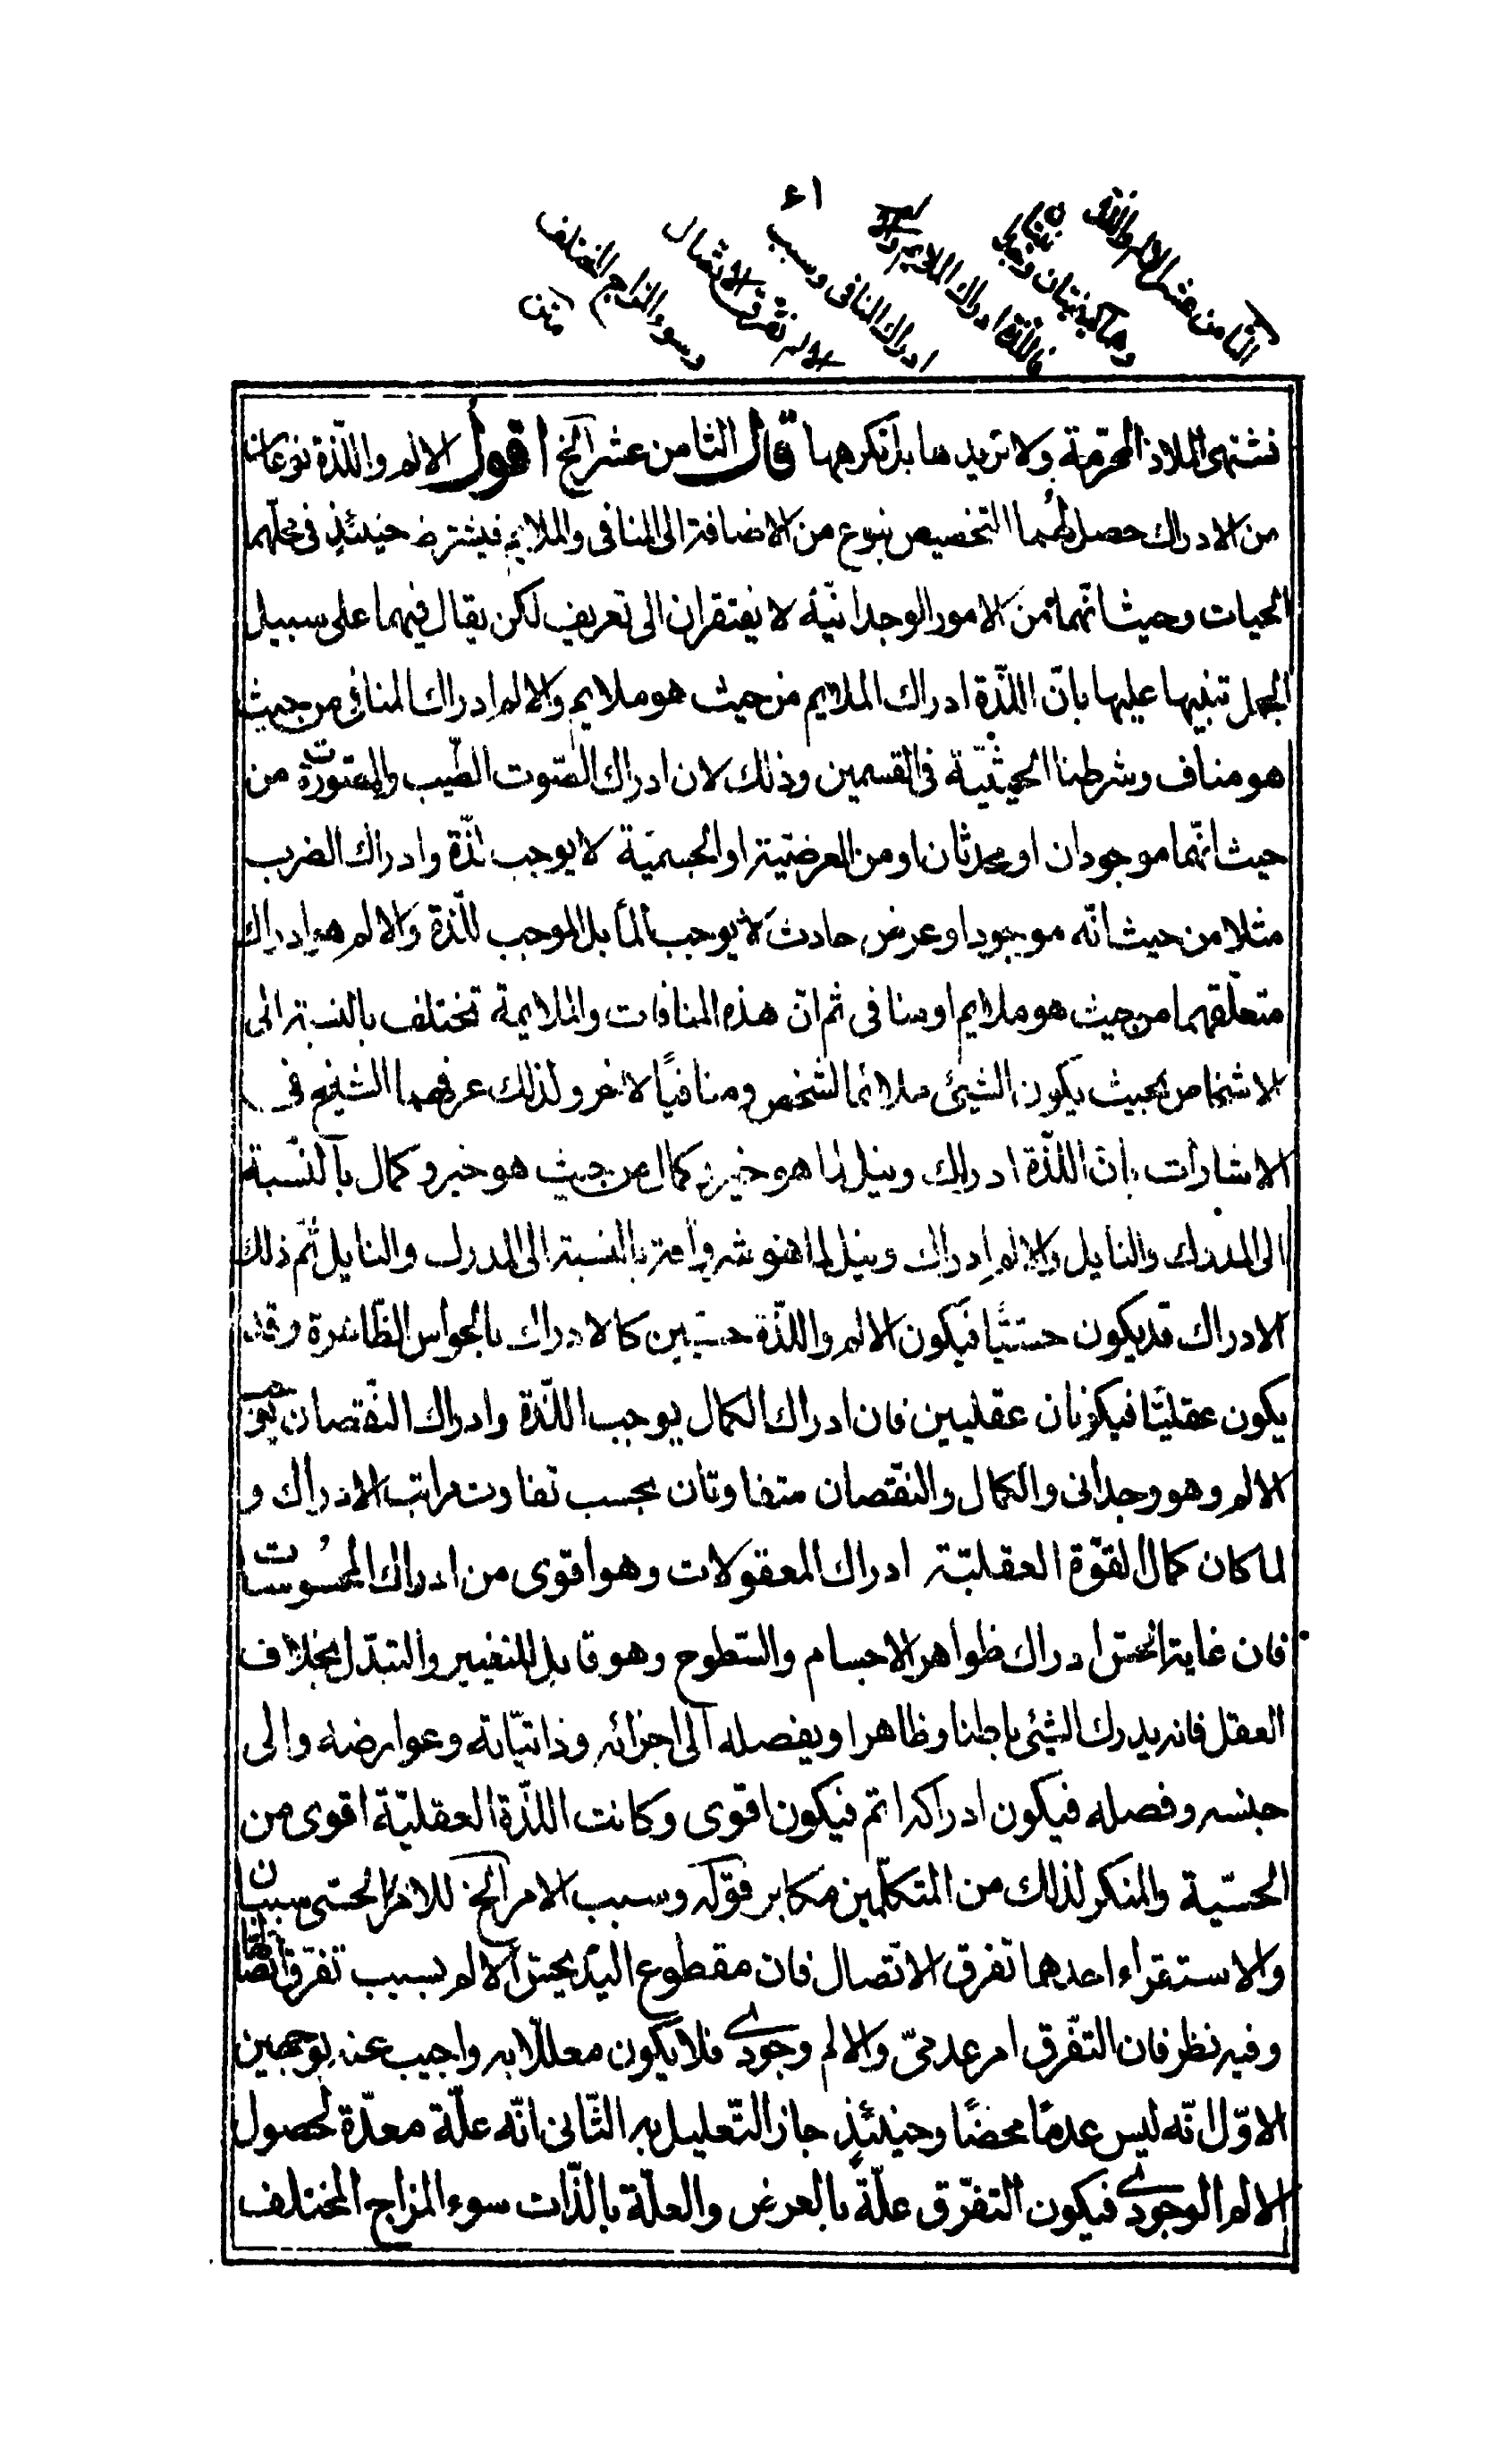 الثامن عشر الالم واللذة
وهما كيفيتان
فاللذة ادراك الملايم والالم
ادراك المنافى وسبب
الالم تفرق الاتصال
وسوء المزاج المختلف
٤١
فنشتهى الملاذ المحرّمة ولا نريدها بل نكرهها قال الثامن عشر الخ اقول الالم واللّذة نوعان
من الادراك حصل لهما التخصيص بنوع من الاضافة الى المنافى والملايم فيشترط حينئذٍ فى محلّهما
الحيات وحيث انّهما من الامور الوجدانيّة لا يفتقران الى تعريف لكن يقال فيهما على سبيل
الجمل تنبيها عليها بانّ اللّذة ادراك الملايم من حيث هو ملايم والالم ادراك المنافى من حيث
هو مناف وشرطنا الحيثيّة فى القسمين وذلك لان ادراك الصّوت الطّيب والصّورة من
حيث انّهما موجودان او محدثان او من العرضيّة او الجسميّة لا يوجب لذّة وادراك الضرب
مثلا من حيث انّه موجود او عرض حادث لا يوجب الما بل الموجب للّذة والالم هو ادراك
متعلّقهما من حيث هو ملايم او منافى ثم انّ هذه المنافات والملايمة تختلف بالنسبة الى
الاشخاص بحيث يكون الشيئ ملائما لشخص ومنافيًا لاخر ولذلك عرفهما الشيخ فى
الاشارات بان اللّذة ادراك ونيل لما هو خير وكمال من حيث هو خير وكمال بالنّسبة
الى المدرك والنايل والالم ادراك ونيل لما هو شر وآفة بالنسبة الى المدرك والنايل ثمّ ذلك
الادراك قد يكون حسّيًّا فيكون الالم واللّذة حسّيين كالادراك بالحواس الظّاهرة وقد
يكون عقليًّا فيكونان عقليين فان ادراك الكمال يوجب اللّذة وادراك النّقصان يوجب
الالم وهو وجدانى والكمال والنقّصان متفاوتان بحسب تفاوت مراتب الادراك و
لما كان كمال القوّة العقليّة ادراك المعقولات وهو اقوى من ادراك المحسُوسات
فان غاية الحسّ ادراك ظواهر الاجسام والسّطوح وهو قابل للتغيير والتبدّل بخلاف
العقل فانه يدرك الشيئ باطنا وظاهرا ويفصله الى اجزائه وذاتيّاته وعوارضه والى
جنسه وفصله فيكون ادراكه اتم فيكون اقوى وكانت اللّذة العقليّة اقوى من
الحسّية والمنكر لذلك من المتكلّمين مكابر قوله وسبب الامر الخ للالم الحسّى سببان
والاستقراء احدهما تفرق الاتّصال فان مقطوع اليد يحسّ الالم بسبب تفرّق اتّصالها
وفيه نظر فان التفّرق امر عدمىّ والالم وجودى فلا يكون معللّا به واجيب عنه بوجهين
الاوّل انّه ليس عدمًا محضًا وحينئذٍ جاز التّعليل به الثّانى انّه علّة معدّة لحصول
الالم الوجودى فيكون التفرّق علّة بالعرض والعلّة بالذّات سوء المزاج المختلف